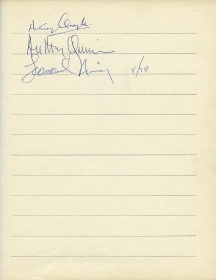 Anthony Quayle
Anthony Quinn
Leonard Nimoy 4/79